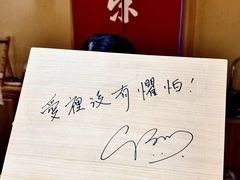 愛裡沒有懼怕!